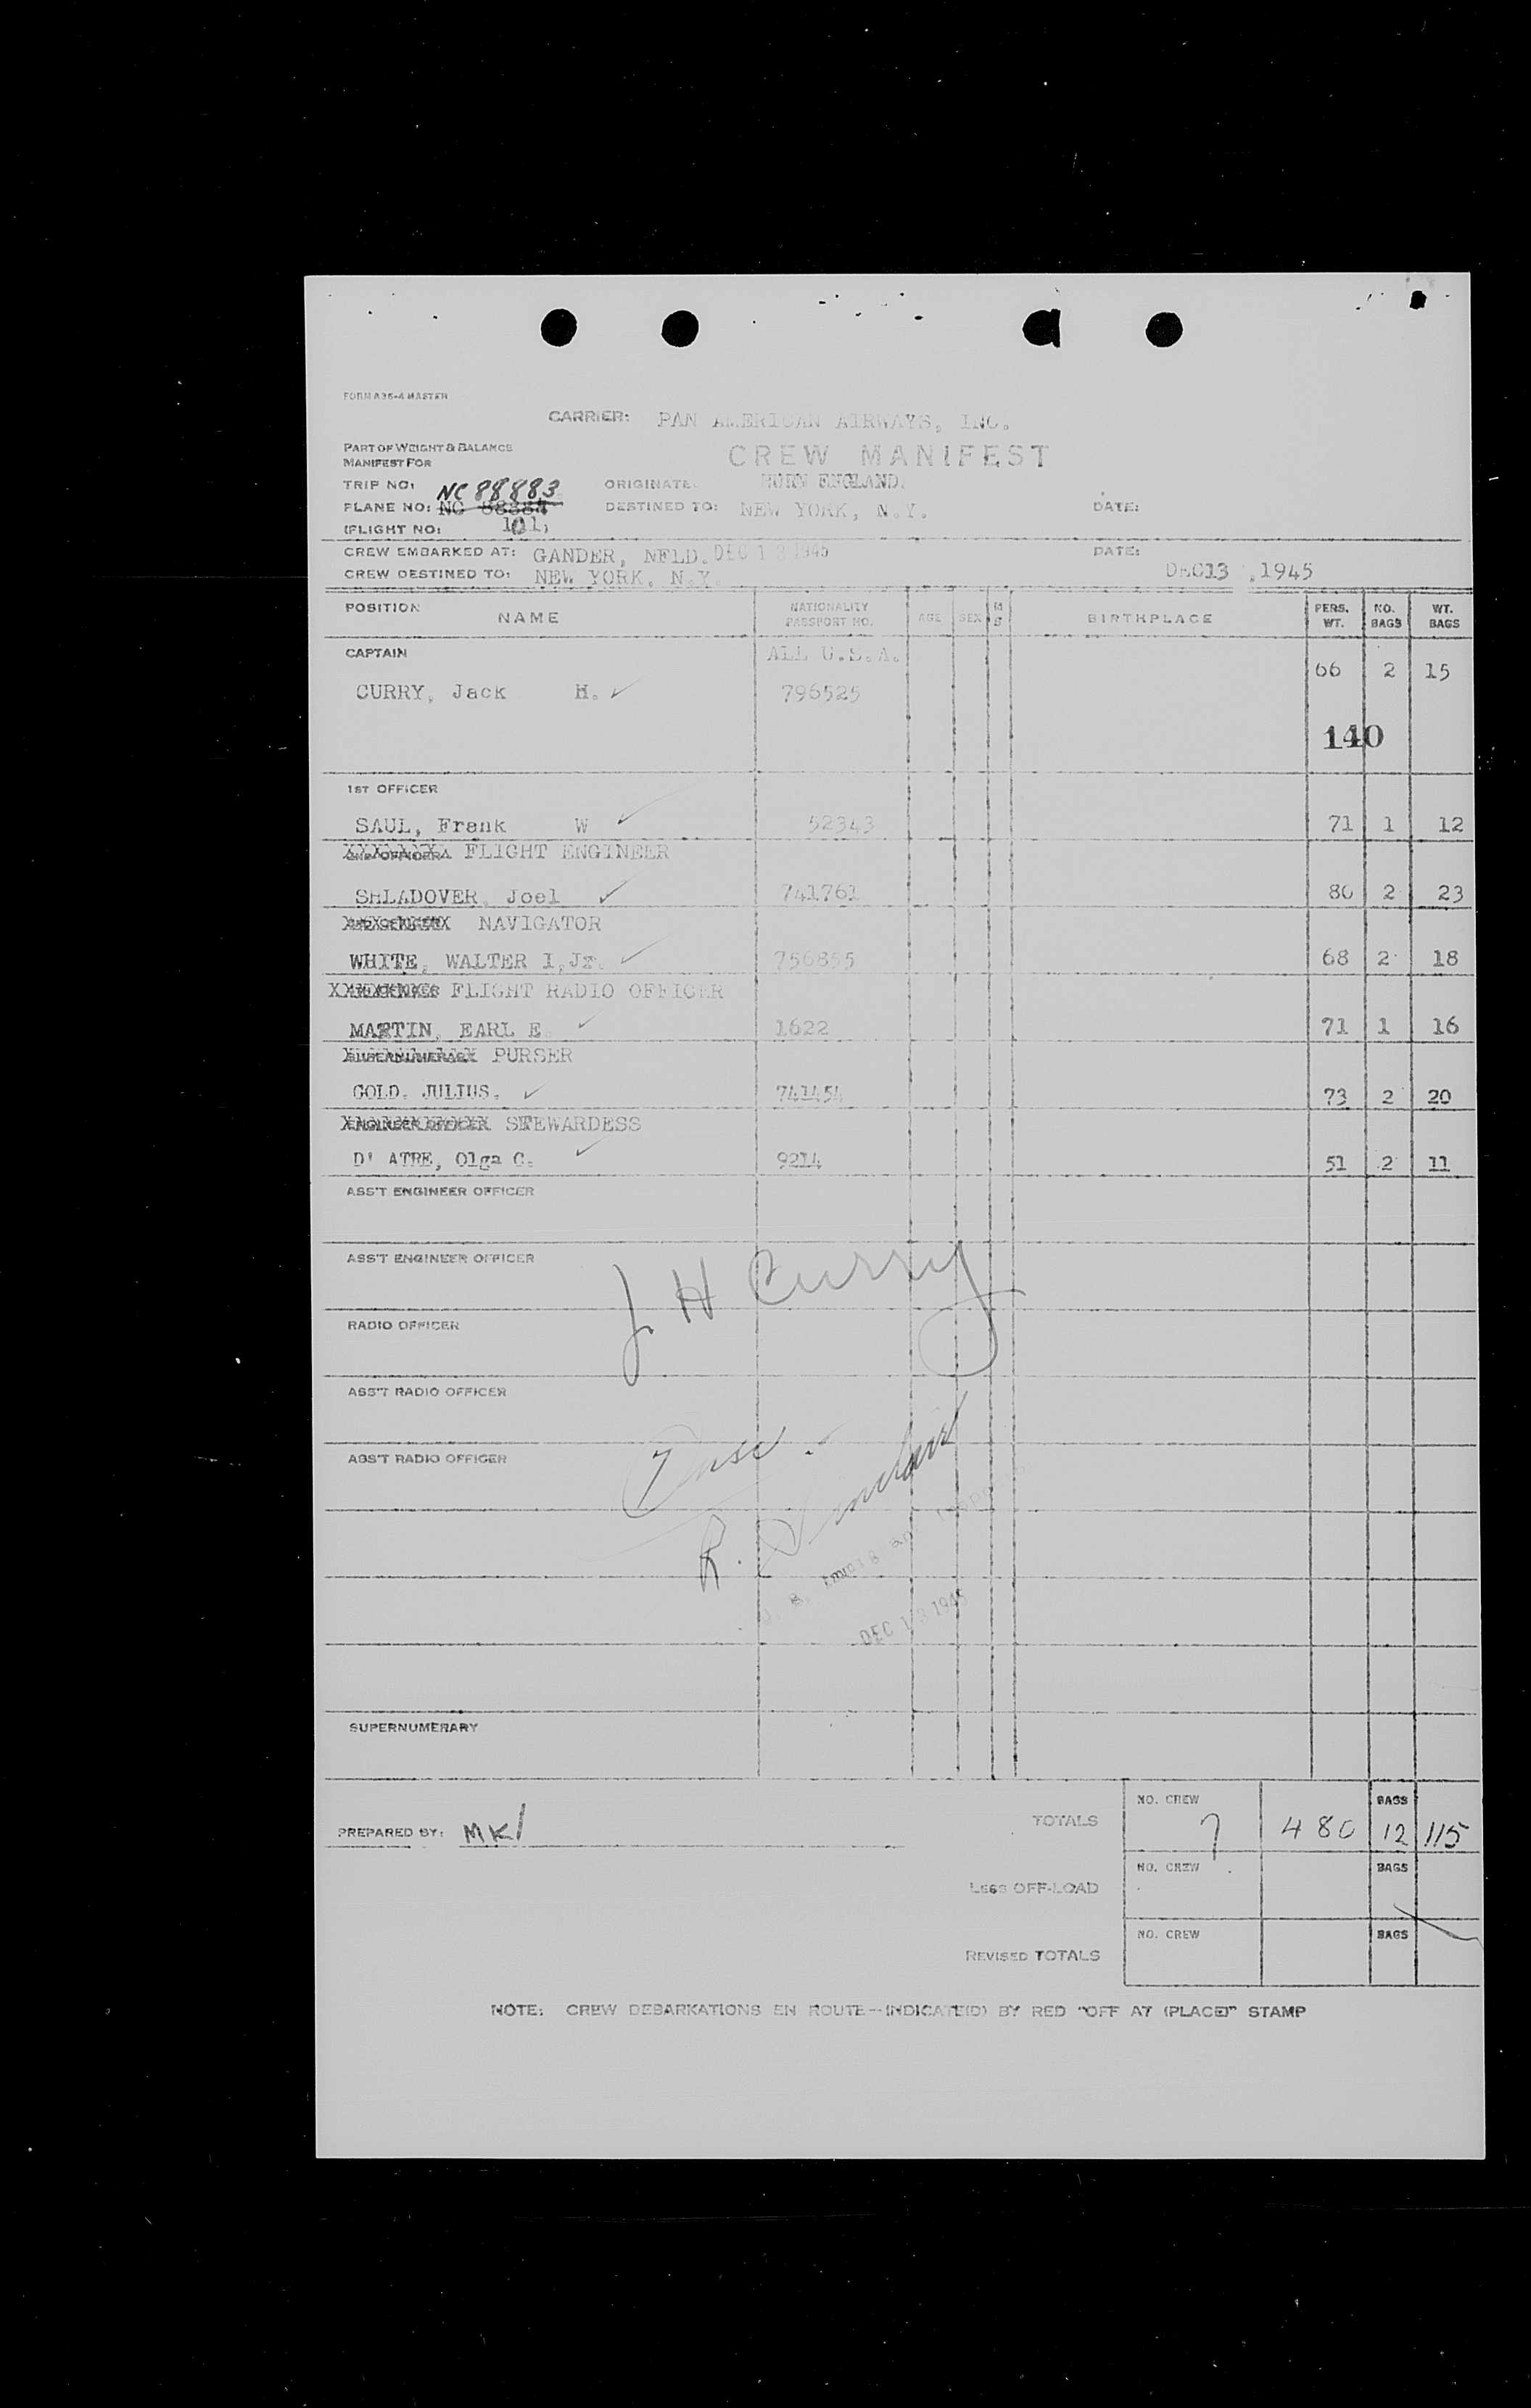 FORM A36-A MASTER
CARRIER: PAN AMERICAN AIRWAYS, INC.
PART OF WEIGHT & BALANCE
MANIFEST FOR
CREW MANIFEST
TRIP NO: NC 88883 ORIGINATE: HURN ENGLAND.
PLANE NO: NC DESTINED TO: NEW YORK, N.Y. DATE:
(FLIGHT NO: 101)
CREW EMBARKED AT: GANDER, NFLD. DEC 13 1945 DATE:
CREW DESTINED TO: NEW YORK, N.Y. DEC13 ,1945
POSITION NAME NATIONALITY PASSPORT NO. AGE SEX M S BIRTHPLACE PERS. WT. NO. BAGS WT. BAGS
CAPTAIN ALL U.S.A.
66 2 15
CURRY, Jack H. ✓ 796525
140
1ST OFFICER
SAUL, Frank W ✓ 52343 71 1 12
FLIGHT ENGINEER
SHLADOVER, Joel ✓ 741761 80 2 23
NAVIGATOR
WHITE, WALTER I,Jr. ✓ 756855 68 2 18
FLIGHT RADIO OFFICER
MARTIN, EARL E. ✓ 1622 71 1 16
SUPERNUMERARY PURSER
GOLD, JULIUS. ✓ 741454 73 2 20
ENGINEER OFFICER STEWARDESS
D' ATRE, Olga C. ✓ 9214 51 2 11
ASS'T ENGINEER OFFICER
ASS'T ENGINEER OFFICER
J H Curry
RADIO OFFICER
ASS'T RADIO OFFICER
ASS'T RADIO OFFICER
R. Sinclair
U. S. Immigrant Inspector
DEC 13 1945
SUPERNUMERARY
NO. CREW BAGS
PREPARED BY: MKI TOTALS 7 480 12 115
NO. CREW BAGS
LESS OFF-LOAD
NO. CREW BAGS
REVISED TOTALS
NOTE: CREW DEBARKATIONS EN ROUTE--INDICATE(D) BY RED "OFF AT (PLACE)" STAMP